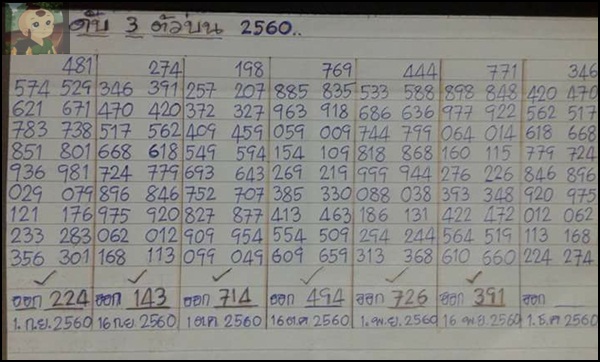 ดับ 3 ตัวบน 2560..
481 274 198 769 444 771 346
574 529 346 391 257 207 885 835 533 588 898 848 420 470
621 671 470 420 372 327 963 918 686 636 977 922 562 517
783 738 517 562 409 459 059 009 744 799 064 014 618 668
851 801 668 618 549 594 154 109 818 868 160 115 779 724
936 981 724 779 693 643 269 219 999 944 276 226 846 896
029 079 896 846 752 707 385 330 088 038 393 348 920 975
121 176 975 920 827 877 413 463 186 131 422 472 012 062
233 283 062 012 909 954 554 509 294 244 564 519 113 168
356 301 168 113 099 049 609 659 313 368 610 660 224 274
ออก 224 ออก 143 ออก 714 ออก 494 ออก 726 ออก 391 ออก
1.ก.ย.2560 16 ก.ย.2560 1 ต.ค 2560 16 ต.ค 2560 1.พ.ย.2560 16 พ.ย.2560 1.ธ.ค 2560